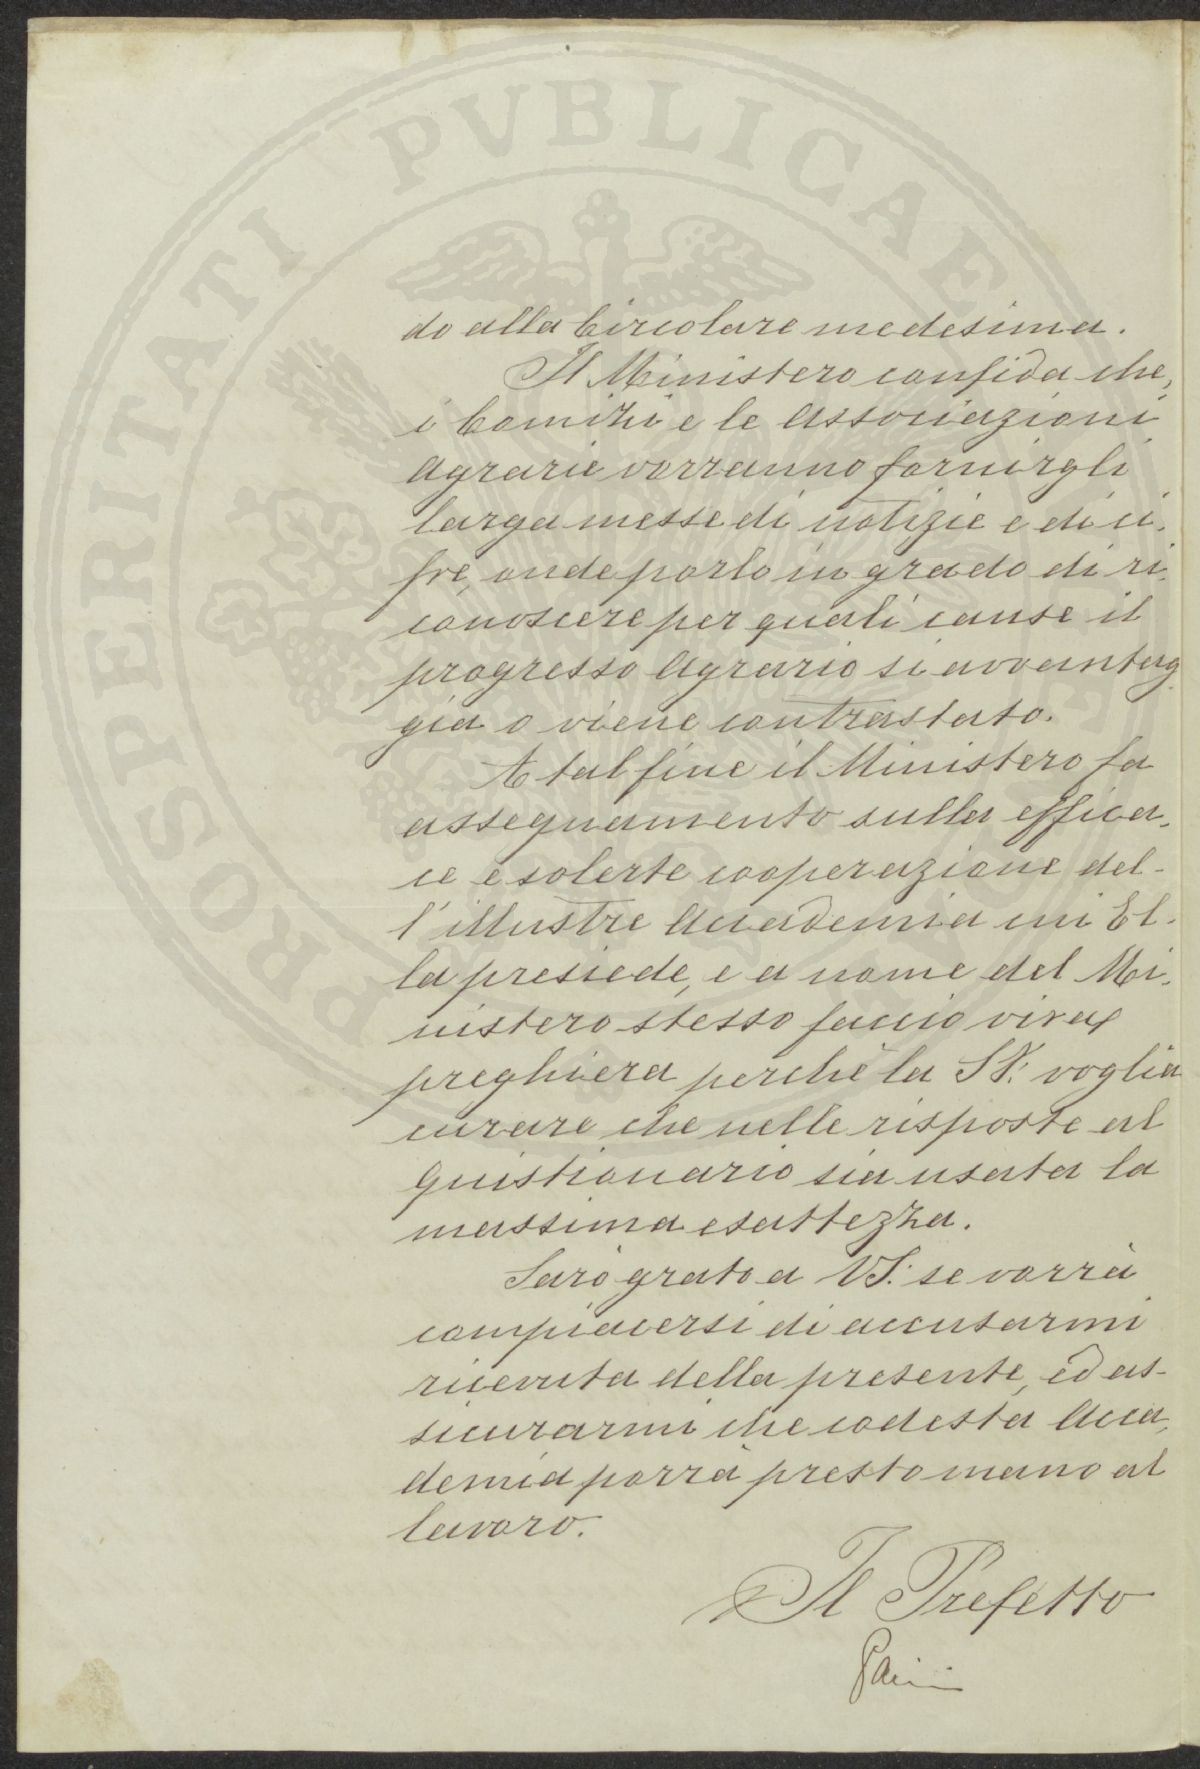 PROSPERITATI PVBLICAE AVGENDAE
do alla Circolare medesima.
Il Ministero confida che,
i Comizi e le Associazioni
Agrarie vorranno fornirgli
larga messe di notizie e di ci,
fre, onde porlo in grado di ri,
conoscere per quali cause il
progresso Agrario si avvantag,
gia o viene contrastato.
A tal fine il Ministero fa
assegnamento sulla effica,
ce e solerte cooperazione del-
l'illustre Accademia cui El-
la presiede, e a nome del Mi,
nistero stesso faccio viva
preghiera perchè la S.V. voglia
curare che nelle risposte al
quistionario sia usata la
massima esattezza.
Sarò grato a V.S. se vorrà
compiacersi di accusarmi
ricevuta della presente, ed as-
sicurarmi che codesta Acca,
demia porrà presto mano al
lavoro.
Il Prefetto